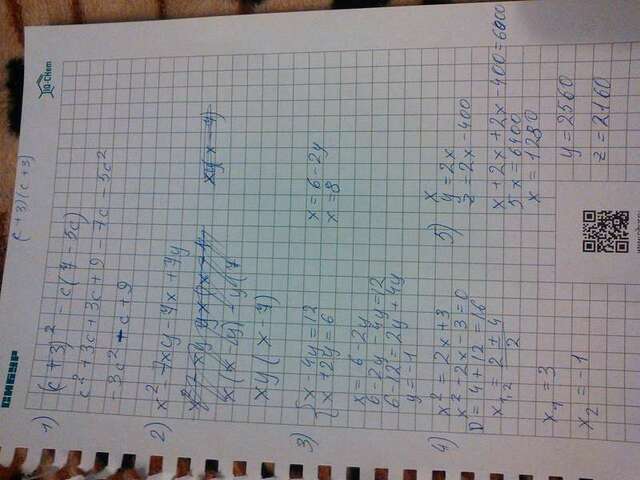 СИБУР
IQ-Chem
(c+3)(c+3)
1) (c+3)² - c(7-5c)
c²+3c+3c+9-7c-5c²
-3c²-c+9
2) x²-7xy-7x+7y
x(x-7y)-y(7
xy(x-7)
xy(x-7)
3) {x-4y=12
{x+2y=6
x=6-2y
6-2y-4y=12
6-12=2y+4y
y=-1
x=6-2y
x=8
4) x²=2x+3
x²-2x-3=0
D=4+12=16
x₁,₂=2±4/2
x₁=3
x₂=-1
5) x
y=2x
z=2x-400
x+2x+2x-400=6000
5x=6400
x=1280
y=2560
z=2160